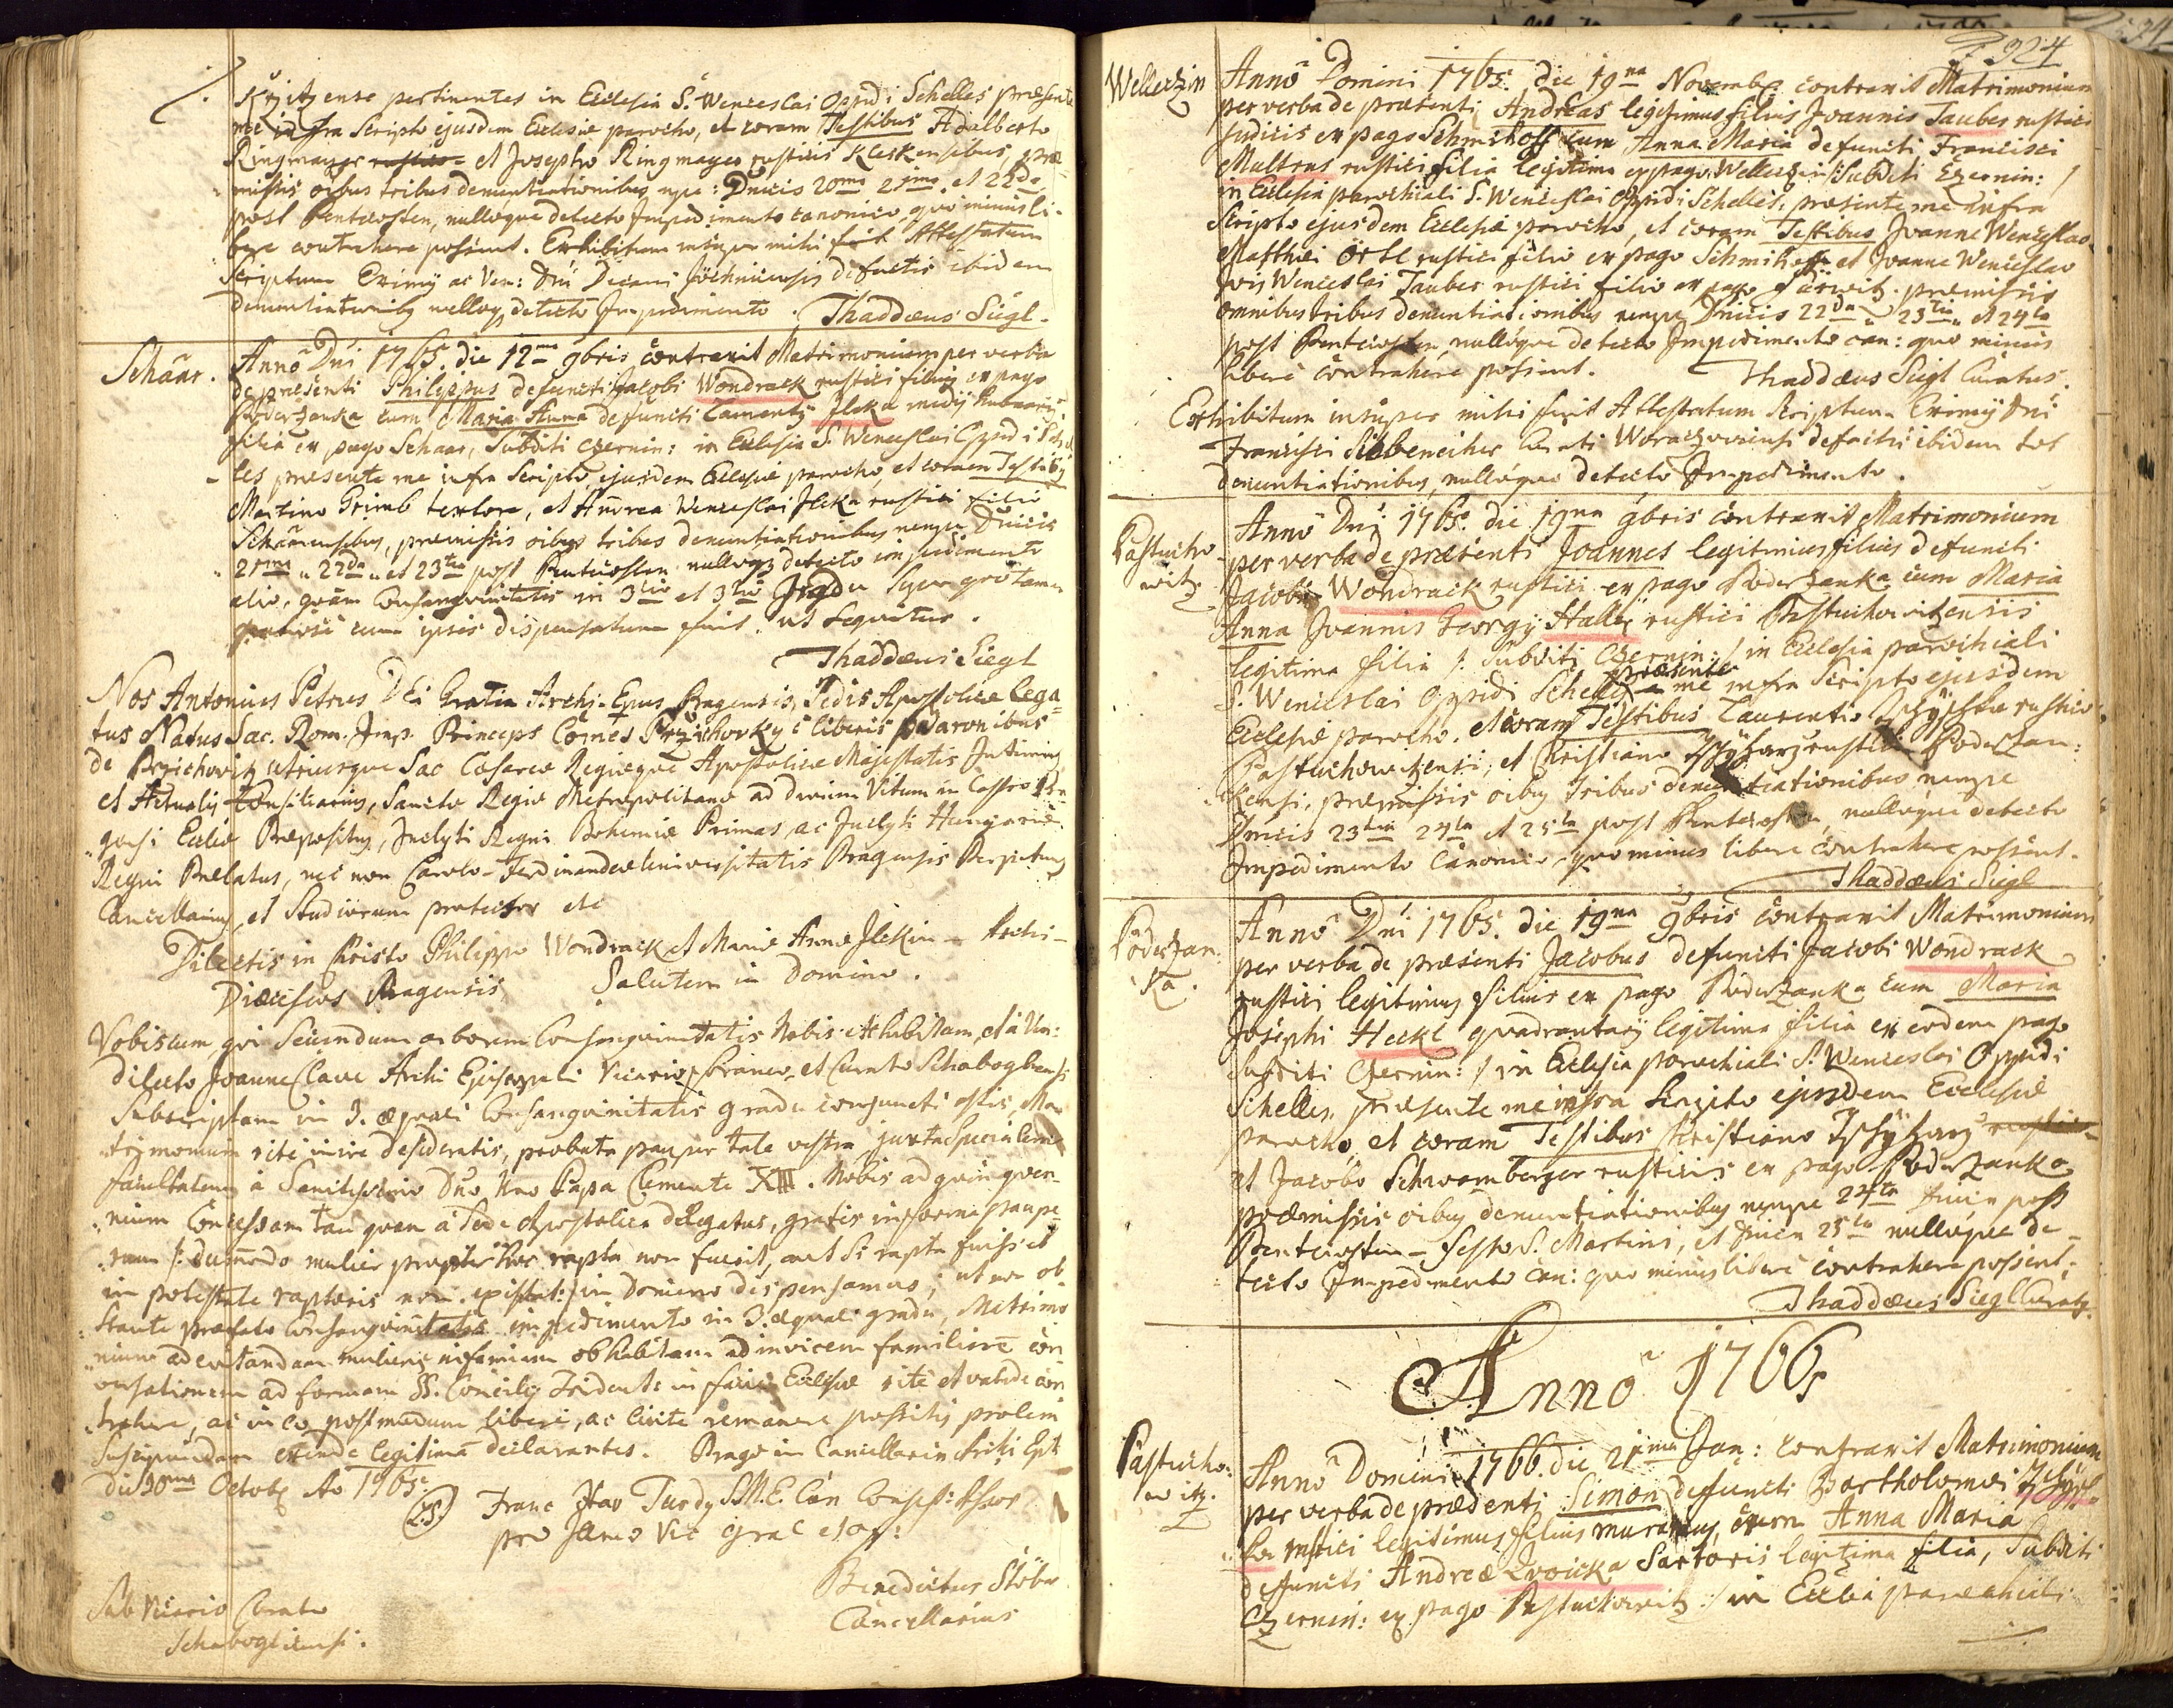 Krzitzense pertinentes in Ecclesia S. Wenceslai Oppidi Schelles præsente
me infra Scripto ejusdem Eclesiæ parocho, et coram Testibus Adalberto
Ringmayer et Josepho Ringmayer rusticis Kleskensibus, præ
missis oibus tribus denuntiationibus nge: Dnicis 20ma 21ma et 22da
post Pentecosten, nulloque detecto Impedimento canonico, quo minus li-
bere contrahere possint. Exhibitum insuper mihi fuit Attestatum
Scriptum Eximij ac Ven: Dni Decani Jechnicensis de factis ibidem
denuntiationibq nulloq detecto Impedimento. Thaddæus Siegl.
Schaar. Anno Dni 1765. die 12ma 9bris contraxit Matrimonium per verba
de præsenti Philippus defuncti Jacobi Wondrack rustici filius ex pago
Poderzanka cum Maria Anna defuncti Laurentij Ilcka medij
filia ex pago Schaar, Subditi Czernin: in Eclesia S. Wenceslai Oppidi Schel
les præsente me infra Scripto, ejusdem Eclesiæ parocho, et coram Testibq
Martino Grimb textore, et Andrea Wenceslai Ilcka rustici filio
Schaarensibus, præmissis oibus tribus denuntiationibus nempe Dnicis
21ma 22da et 23tia post Pentecosten nulloq detecto impedimento
alio, quam Consanguinitatis in 3tio et 3tio Gradu Super quo tamen
cum ipsis dispensatum fuit. ut Sequitur.
Thaddæus Siegl
Nos Antonius Petrus DEi Gratia Archi-Epus Pragensis, Sedis Apostolicæ lega
tus Natus Sac. Rom. Imp. Princeps Comes Przichovsky è liberis Baronibus
de Przichovitz utriusque Sac Cæsareæ Regiæque Apostolicæ Majestatis Intimus
et Actualis Consiliarius, Sanctæ Regiæ Metropolitanæ ad Divum Vitum in Castro Pra
gensi Eccliæ Præpositus, Inclyti Regni Bohemiæ Primas, ac Inclyti Hungariæ
Regni Prælatus, nec non Carolo-Ferdinandeæ Universitatis Pragensis Perpetuus
Cancellarius, et Studiorum protector etc
Dilectis in Christo Philippo Wondrack et Mariæ Annæ Ilckin Archi-
Diæceseos Pragensis Salutem in Domino.
Vobiscum qui Secundum arborem Consanguinitatis Nobis exhibitam, et à Ven:
dilecto Joanne Clave Archi Episcopali Vicario foraneo, et Curato Schaboglücensi
Subscriptam in 3. æquali Consanguinitatis gradu conjuncti estis, Ma
trimonium rite inire desideratis, probata paupertate vestra, juxta Specialem
facultatem à Sanctissimo Dno Nro Papa Clemente XIII. Nobis ad quinquen
nium Concessam tanquam à Sede Apostolica delegatus, gratis in forma paupe
rum /: dummodo mulier propter hoc rapta non fuerit, aut Si rapta fuisset
in potestate raptoris non existat :/ in Domino dispensamus; ut non ob
stante præfato Consanguinitatis impedimento in 3. æquali gradu, Matrimo
nium ad evitandam mulieris infamiam ob habitam ad invicem familiarem con
versationem ad formam SS. Concilij Tridenti: in facie Ecclesiæ rite et valide con
trahere, ac in eo postmodum libere, ac licite remanere possitis prolem
Suscipiendam exinde legitimam declarantes. Pragæ in Cancellaria Archi Eppli
die 30ma Octobr Ao 1765.
(L.S.) Franc Xav Turdy S.M.E. Can
pro Illmo Vic Gral
Benedictus Stöber
Cancellarius
Sub Vicario Curato
Schaboglücensi.
324
Wellerzin Anno Domini 1765. die 19na Novembr contraxit Matrimonium
per verba de præsenti Andreas legitimus filius Joannis Tauber rustici
Judicis ex pago Schmihoff cum Anna Maria defuncti Francisci
Multrus rustici filia legitima ex pago Wellerzin /: Subditi Czernin: /
in Eclesia parochiali S. Wenceslai Oppidi Schelles, præsente me infra
Scripto ejusdem Eclesiæ parocho, et coram Testibus Joanne Wenceslao
Matthiei Ortl rustici filio ex pago Schmihoff et Joanne Wenceslao
Wenceslai Tauber rustici filio ex pago præmissis
omnibus tribus denuntiationibus nempe Dnicis 22da 23tia et 24ta
post Pentecosten, nulloque detecto Impedimento can: quo minus
libere contrahere possint. Thaddæus Siegl Curatus.
Exhibitum insuper mihi fuit Attestatum Scriptum Eximij Dni
Francisci Siebeneicher Curati Woraczoviensi de factis ibidem tot
denuntiationibus, nulloque detecto Impedimento.
Pastucho
witz. Anno Dni 1765. die 19na 9bris contraxit Matrimonium
per verba de præsenti Joannes legitimus filius defuncti
Jacobi Wondrack rustici ex pago Poderzanka cum Maria
Anna Joannis Georgij Haller rustici Pastuchovitzensis
legitima filia /: Subditi Czernin: / in Eclesia parochiali
S. Wenceslai Oppidi Schelles præsente me infra Scripto ejusdem
Ecclesiæ parocho. et coram Testibus Laurentio rustico
Pastuchowitzensi, et Christiano rustico Poderzan:
Kensi, præmissis oibus tribus denuntiationibus nempe
Dnicis 23tia 24ta et 25ta post Pentecosten, nulloque detecto
Impedimento Canonico, quo minus libere contrahere possint.
Thaddæus Siegl
Poderzan:
ka. Anno Dni 1765. die 19na 9bris contraxit Matrimonium
per verba de præsenti Jacobus defuncti Jacobi Wondrack
rustici legitimus filius ex pago Poderzanka cum Maria
Josephi Heckl quadrantarij legitima filia ex eodem pago
Subditi Czernin: / in Eclesia parochiali S. Wenceslai Oppidi
Schelles, præsente me infra Scripto ejusdem Ecclesiæ
parocho, et coram Testibus Christiano
et Jacobo Schwamberger rusticis ex pago Poderzanka
præmissis oibus denuntiationibus nempe 24ta Dnica post
Pentecosten - festo S. Martini, et Dnica 25ta nulloque de-
tecto Impedimento can: quo minus libere contrahere possint;
Thaddæus Siegl Curatq.
Anno 1766.
Pastucho:
witz. Anno Domini 1766. die 21ma Jan: contraxit Matrimonium
per verba de præsenti Simon defuncti Bartholomæi
rustici legitimus filius murarius, cum Anna Maria
defuncti Andreæ Zwoicka Sartoris legitima filia, Subditi
Czernin: ex pago Pastuchovitz :/ in Ecclia parochiali